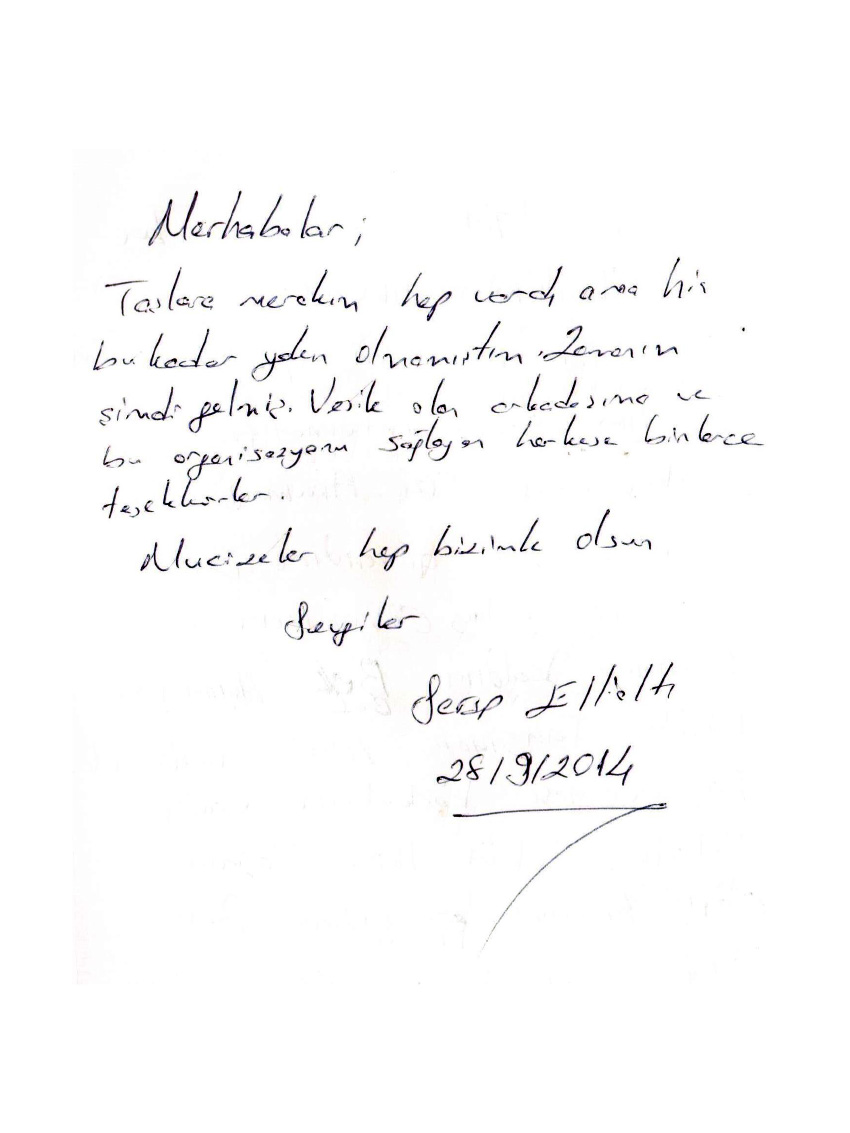 Merhabalar;
Taşlara merakım hep vardı ama hiç
bu kadar yakın olmamıştım. Zamanın
şimdi gelmiş. Vesile olan arkadaşıma ve
bu organisazyonu sağlayan herkese binlerce
teşekkürler.
Mucizeler hep bizimle olsun
Sevgiler
Serap
28/9/2014